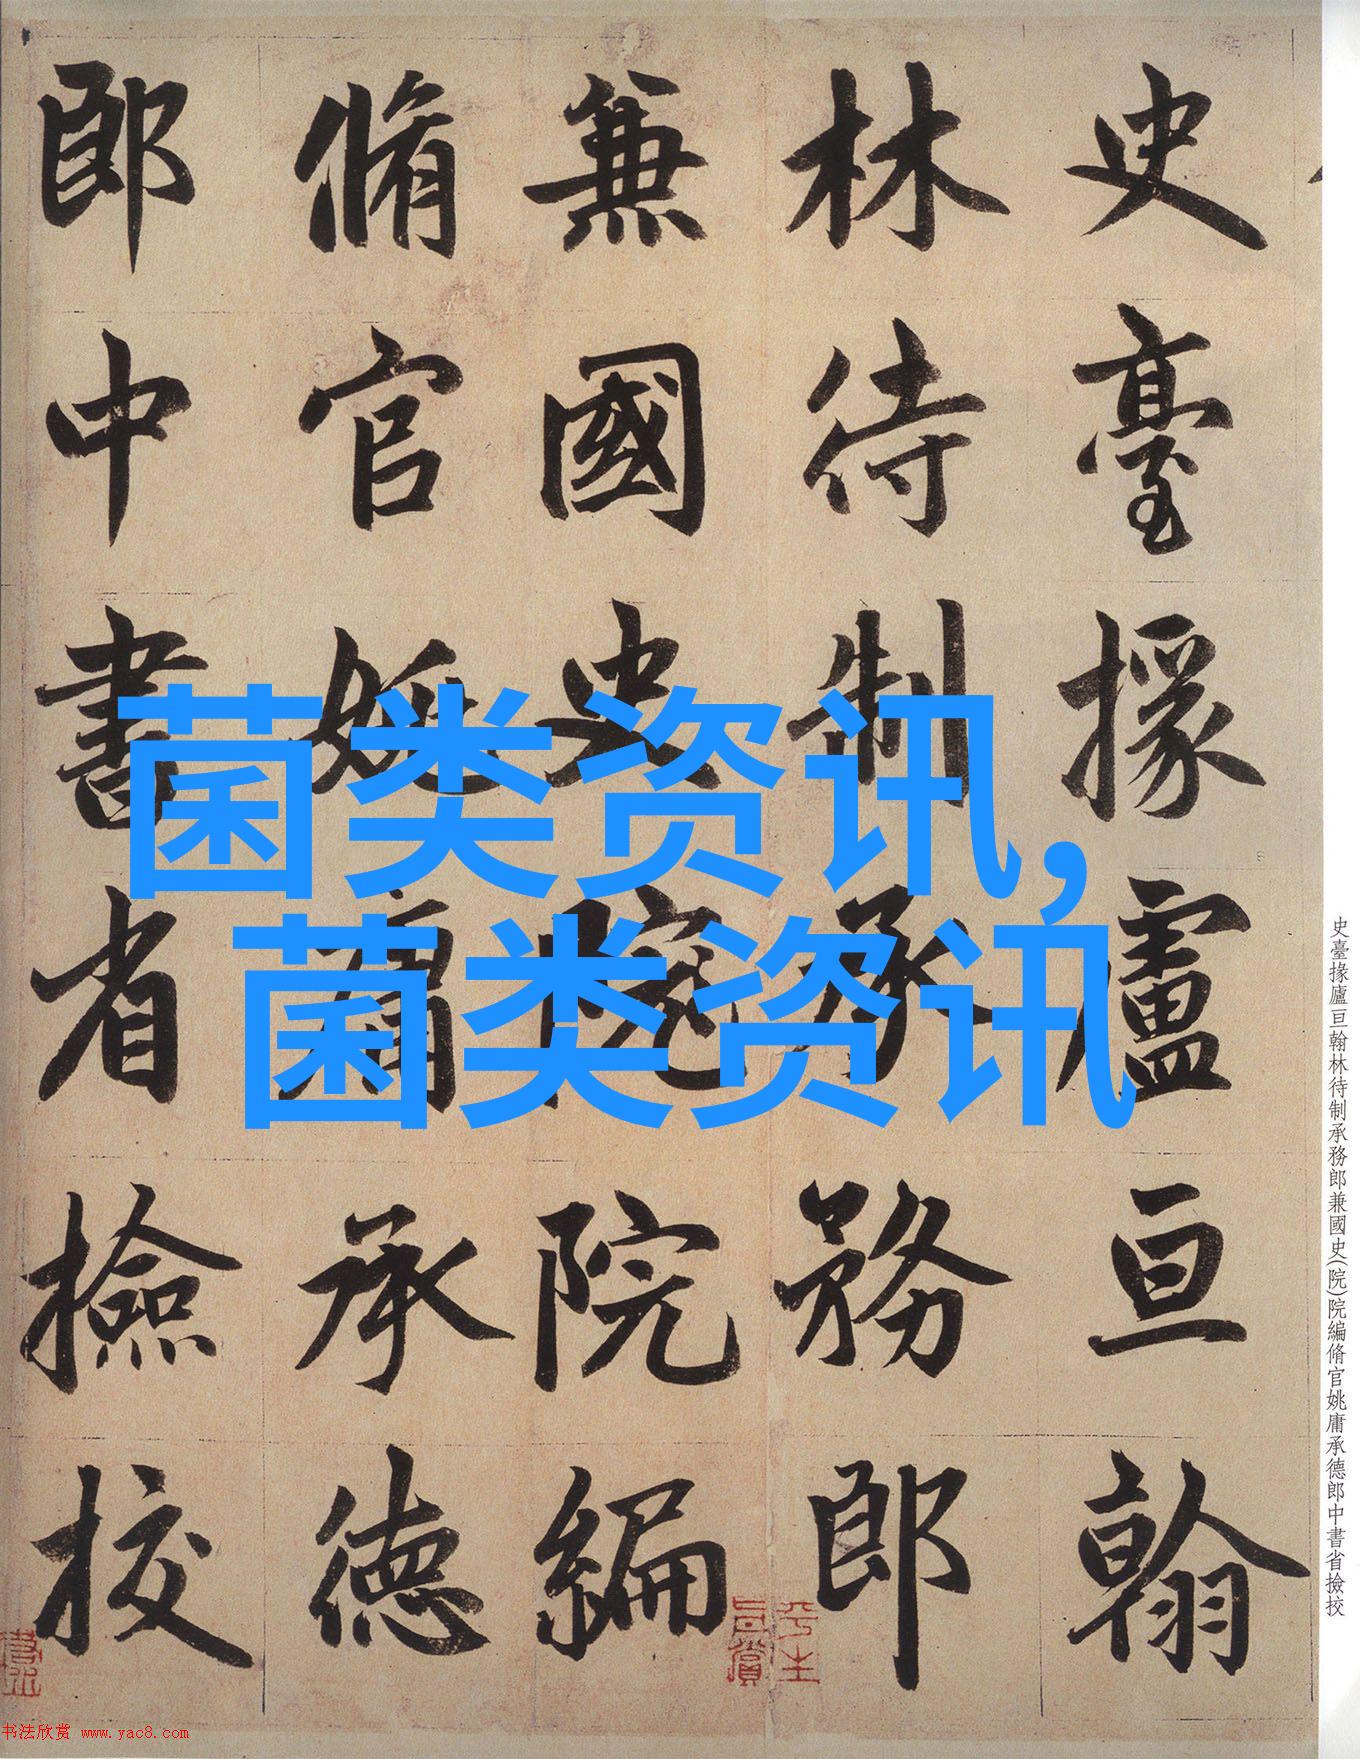 史臺掾廬亘翰
林待制承務郎
兼國史院院編
脩官姚庸承德
郎中書省撿挍
菌类资讯,
菌类资讯
史臺掾廬亘翰林待制承務郎兼國史(院)院編脩官姚庸承德郎中書省撿挍
平生
书法欣赏 www.yac8.com